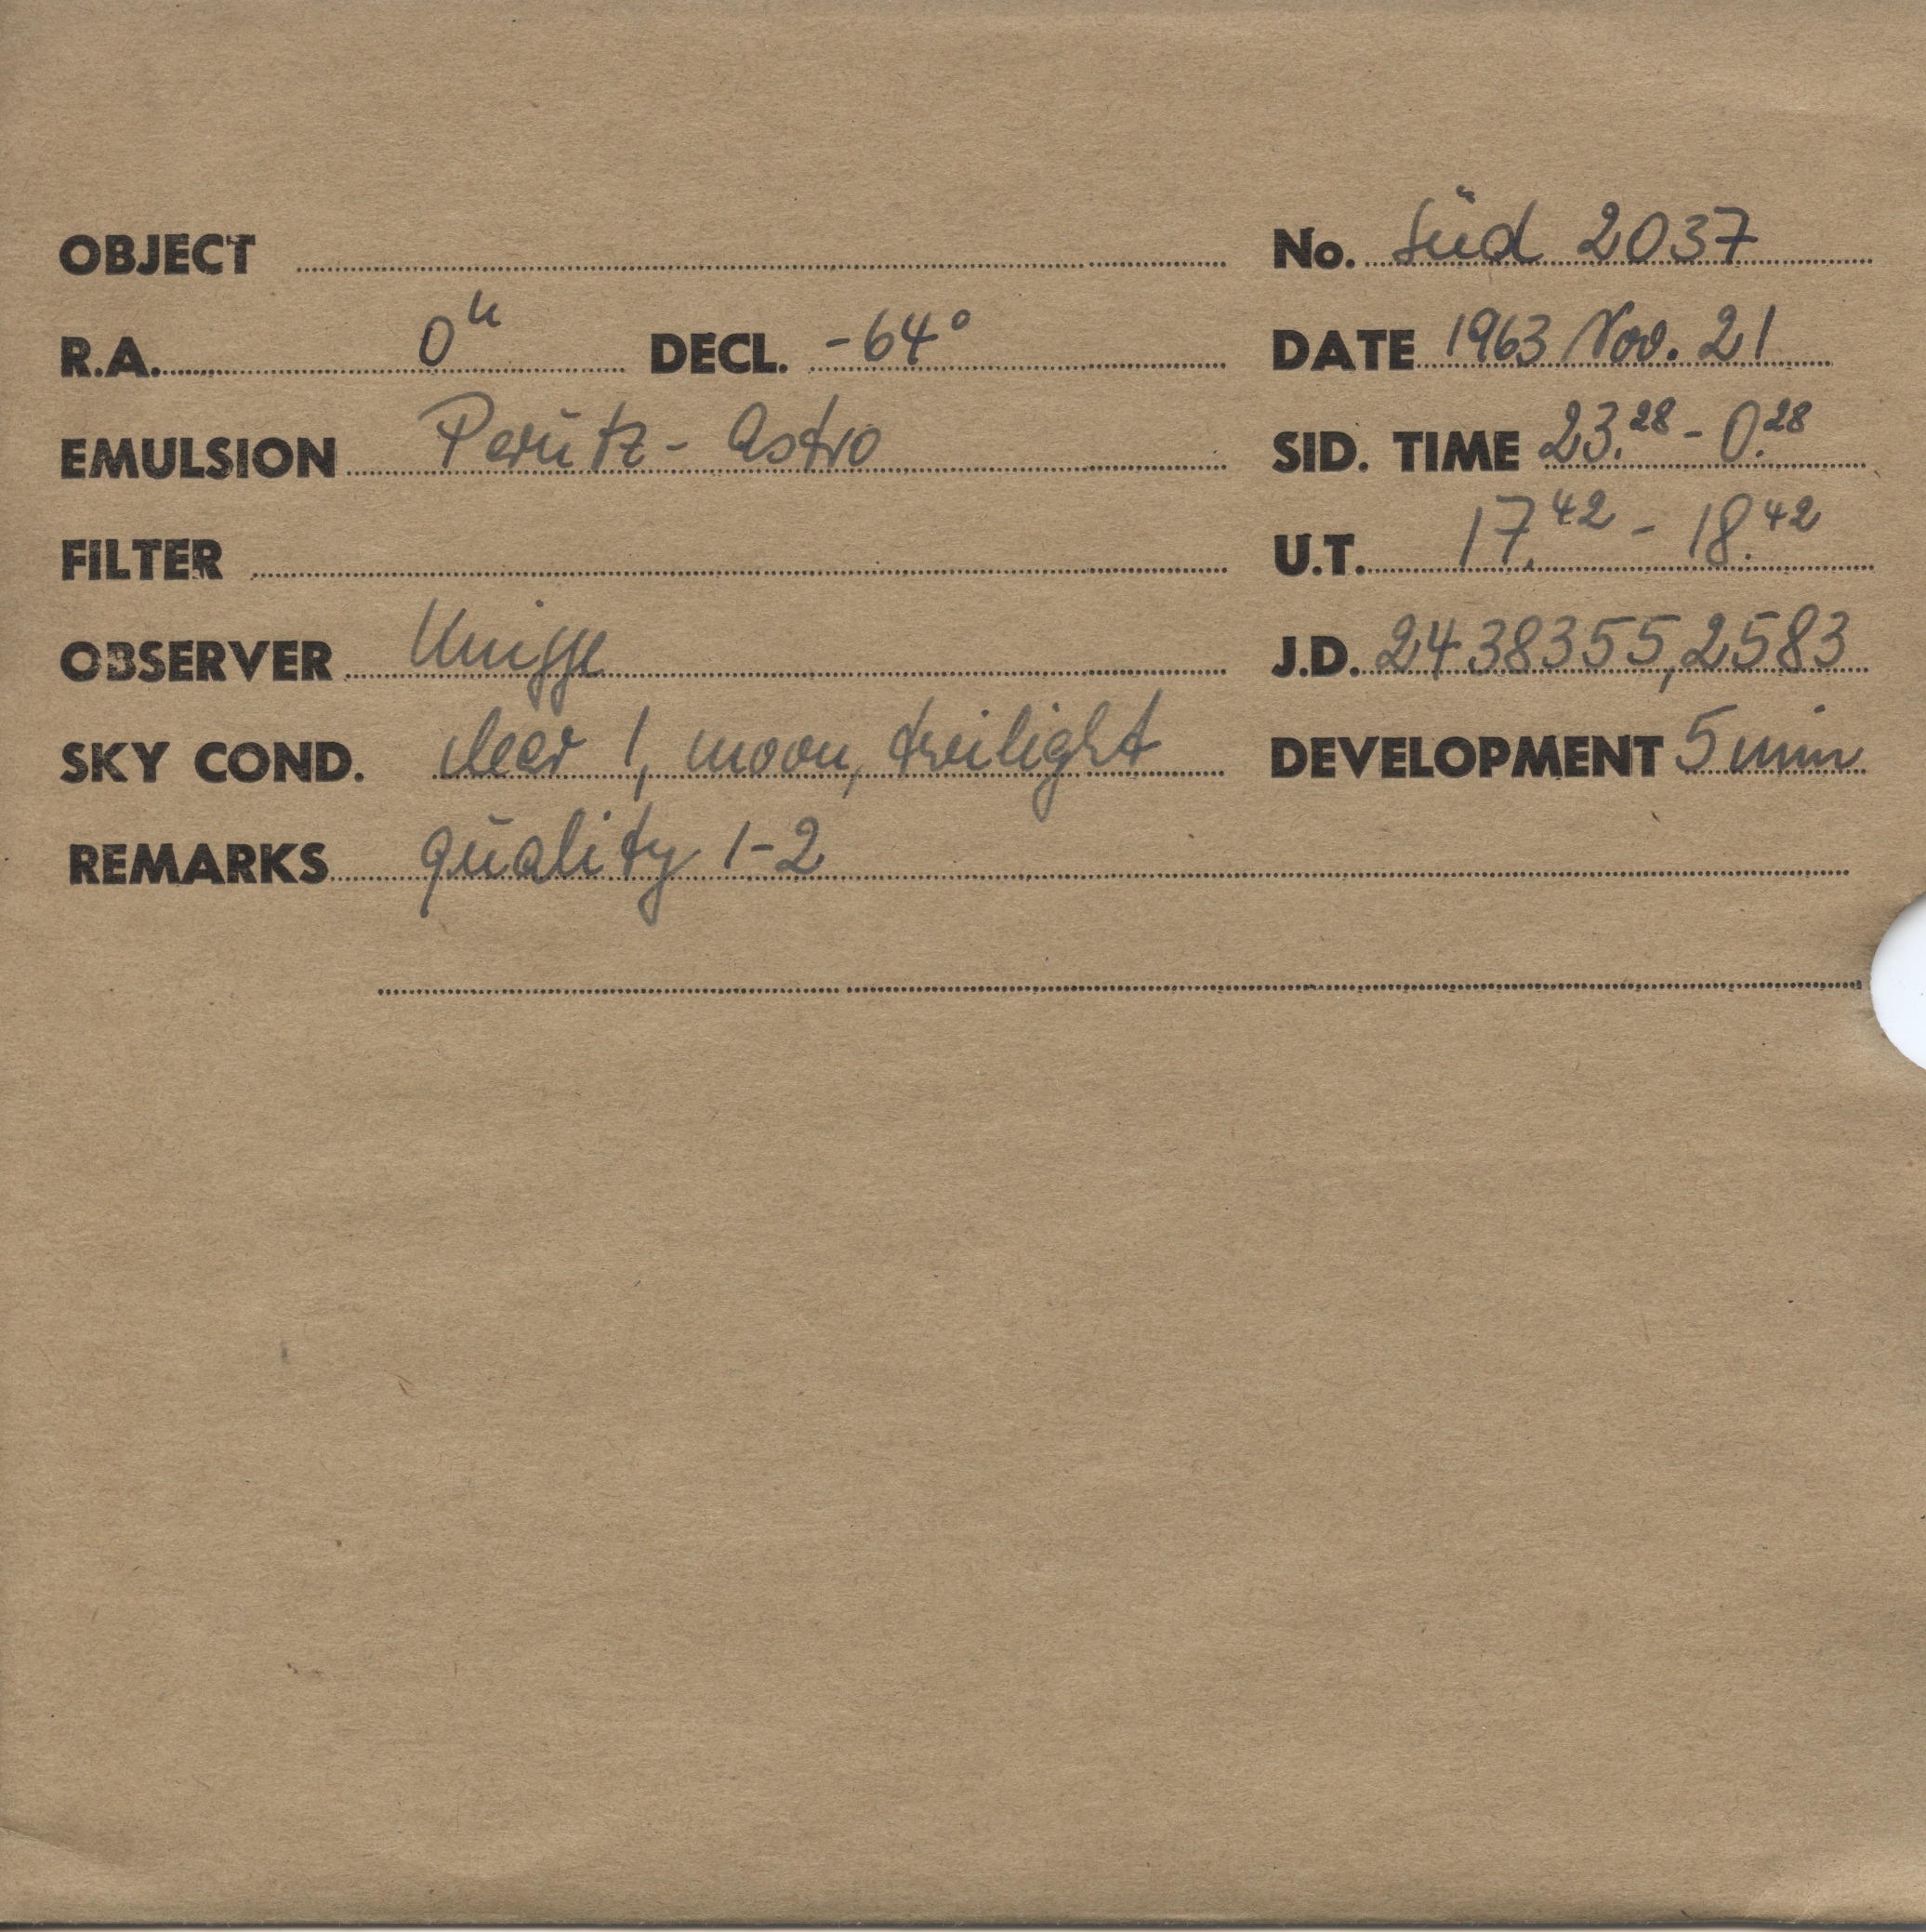 OBJECT No. Süd 2037
R.A. 0h DECL. -64° DATE 1963 Nov. 21
EMULSION Perutz - Astro SID. TIME 23.28 - 0.28
FILTER U.T. 17.42 - 18.42
OBSERVER Knigge J.D. 2438355,2583
SKY COND. clear 1, moon, twilight DEVELOPMENT 5 min
REMARKS quality 1-2